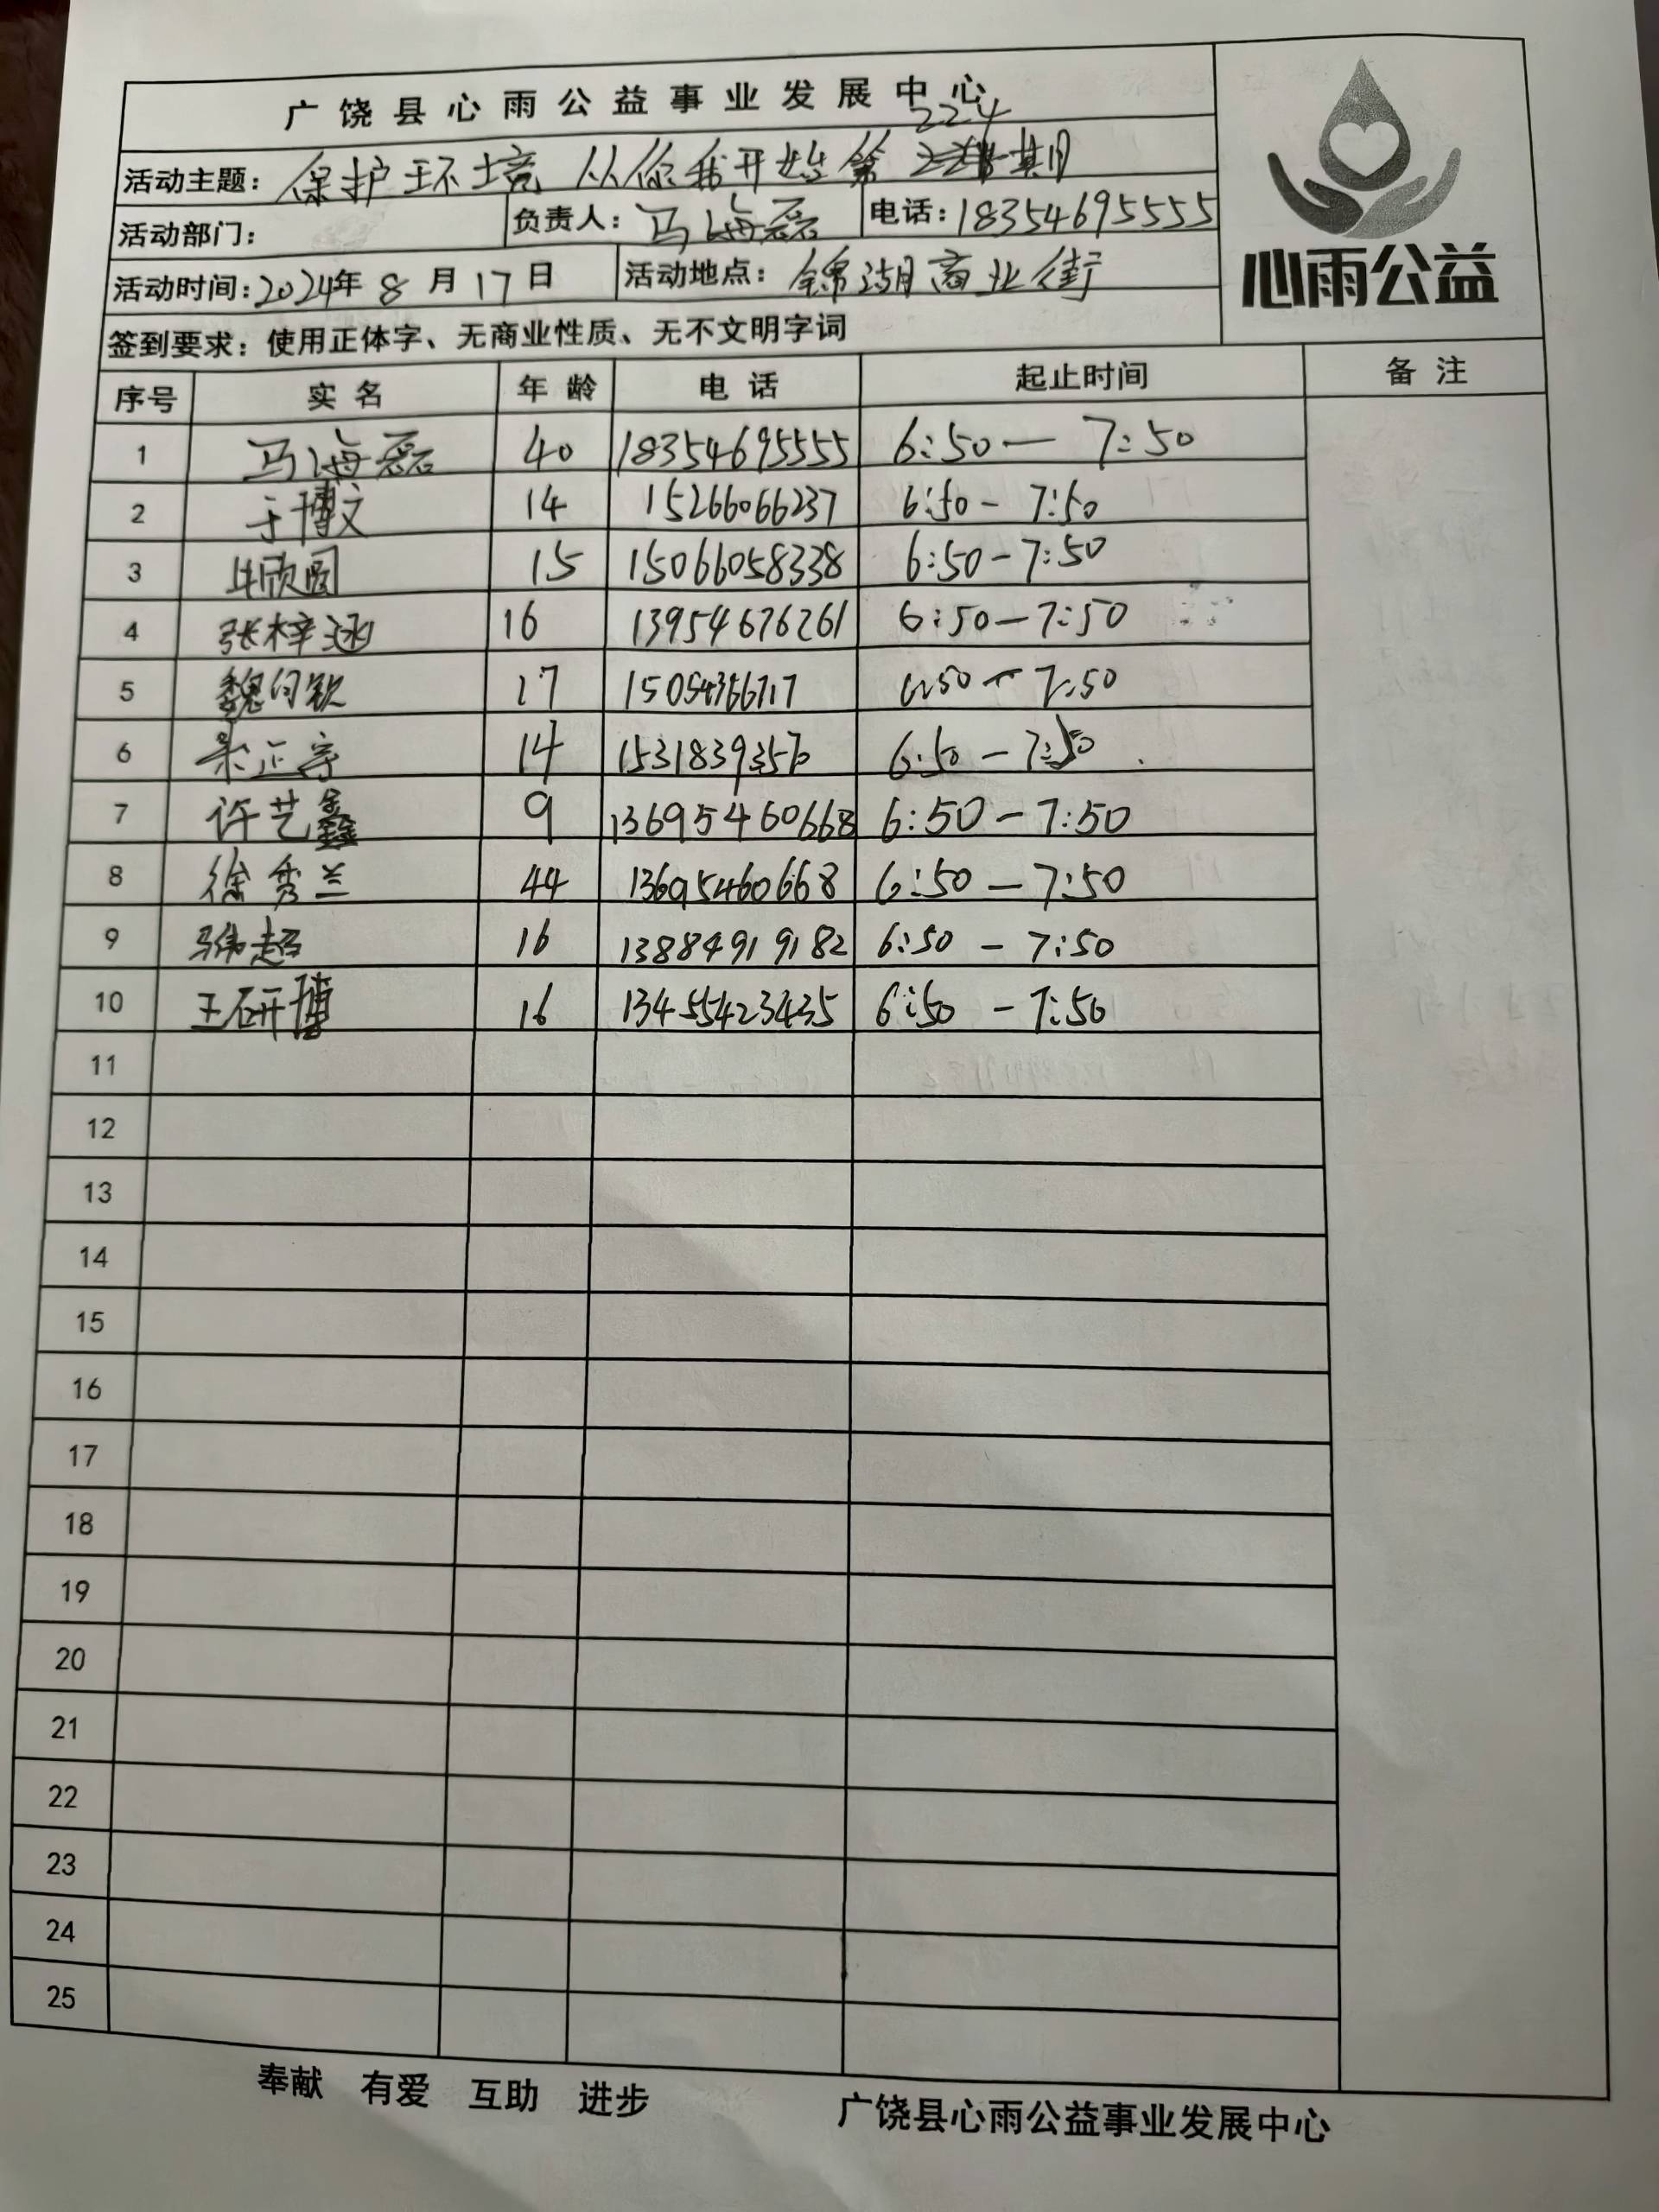 广饶县心雨公益事业发展中心
224
活动主题：保护环境 从你我开始第 期
活动部门： 负责人：马海磊 电话：18354695555
活动时间：2024年8月17日 活动地点：锦湖商业街
心雨公益
签到要求：使用正体字、无商业性质、无不文明字词
序号 实名 年龄 电话 起止时间 备注
1 马海磊 40 18354695555 6:50—7:50
2 于博文 14 15266066237 6:50-7:50
3 欣圆 15 15066058338 6:50-7:50
4 张梓涵 16 13954676261 6:50-7:50
5 魏 17 6:50-7:50
6 正 14 6:50-7:50
7 许艺鑫 9 13695460668 6:50-7:50
8 徐秀兰 44 13695460668 6:50-7:50
9 超 16 13884919182 6:50-7:50
10 王研博 16 13455423435 6:50-7:50
11
12
13
14
15
16
17
18
19
20
21
22
23
24
25
奉献 有爱 互助 进步 广饶县心雨公益事业发展中心